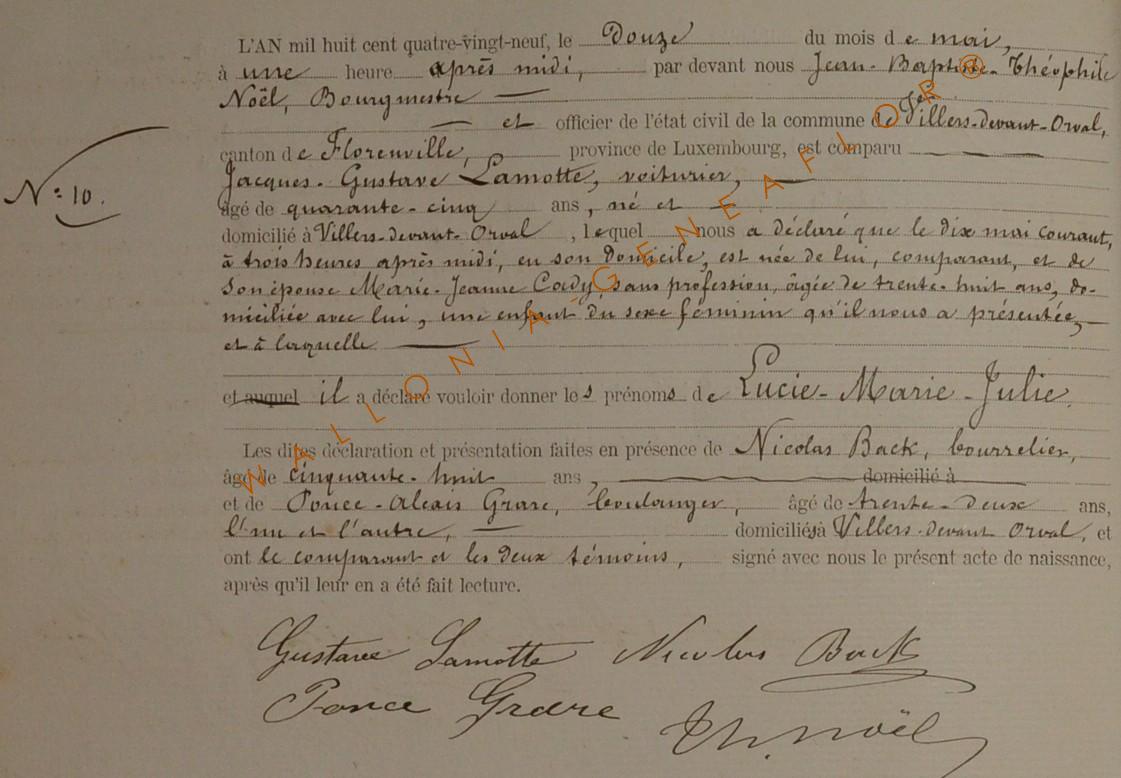 L'AN mil huit cent quatre-vingt-neuf, le Douze du mois de mai,
à une heure après midi, par devant nous Jean-Baptiste-Théophile
Noël, Bourgmestre
et officier de l'état civil de la commune de Villers-devant-Orval,
N: 10.
canton de Florenville, province de Luxembourg, est comparu
Jacques-Gustave Lamotte, voiturier,
âgé de quarante-cinq ans, né et
domicilié à Villers-devant-Orval, lequel nous a déclaré que le dix mai courant,
à trois heures après midi, en son domicile, est née de lui, comparant, et de
son épouse Marie-Jeanne Cady, sans profession, âgée de trente-huit ans, do-
miciliée avec lui, une enfant du sexe féminin qu'il nous a présentée,
et à laquelle
et auquel il a déclaré vouloir donner les prénoms de Lucie-Marie-Julie.
Les dites déclaration et présentation faites en présence de Nicolas Back, bourrelier,
âgé de cinquante-huit ans, domicilié à
et de Ponce-Alexis Grare, boulanger, âgé de trente-deux ans,
l'un et l'autre, domiciliés à Villers-devant Orval, et
ont le comparant et les deux témoins, signé avec nous le présent acte de naissance,
après qu'il leur en a été fait lecture.
Gustave Lamotte Nicolas Back
Ponce Grare Th. Noël
WALLONIA-GENEAFLOR®